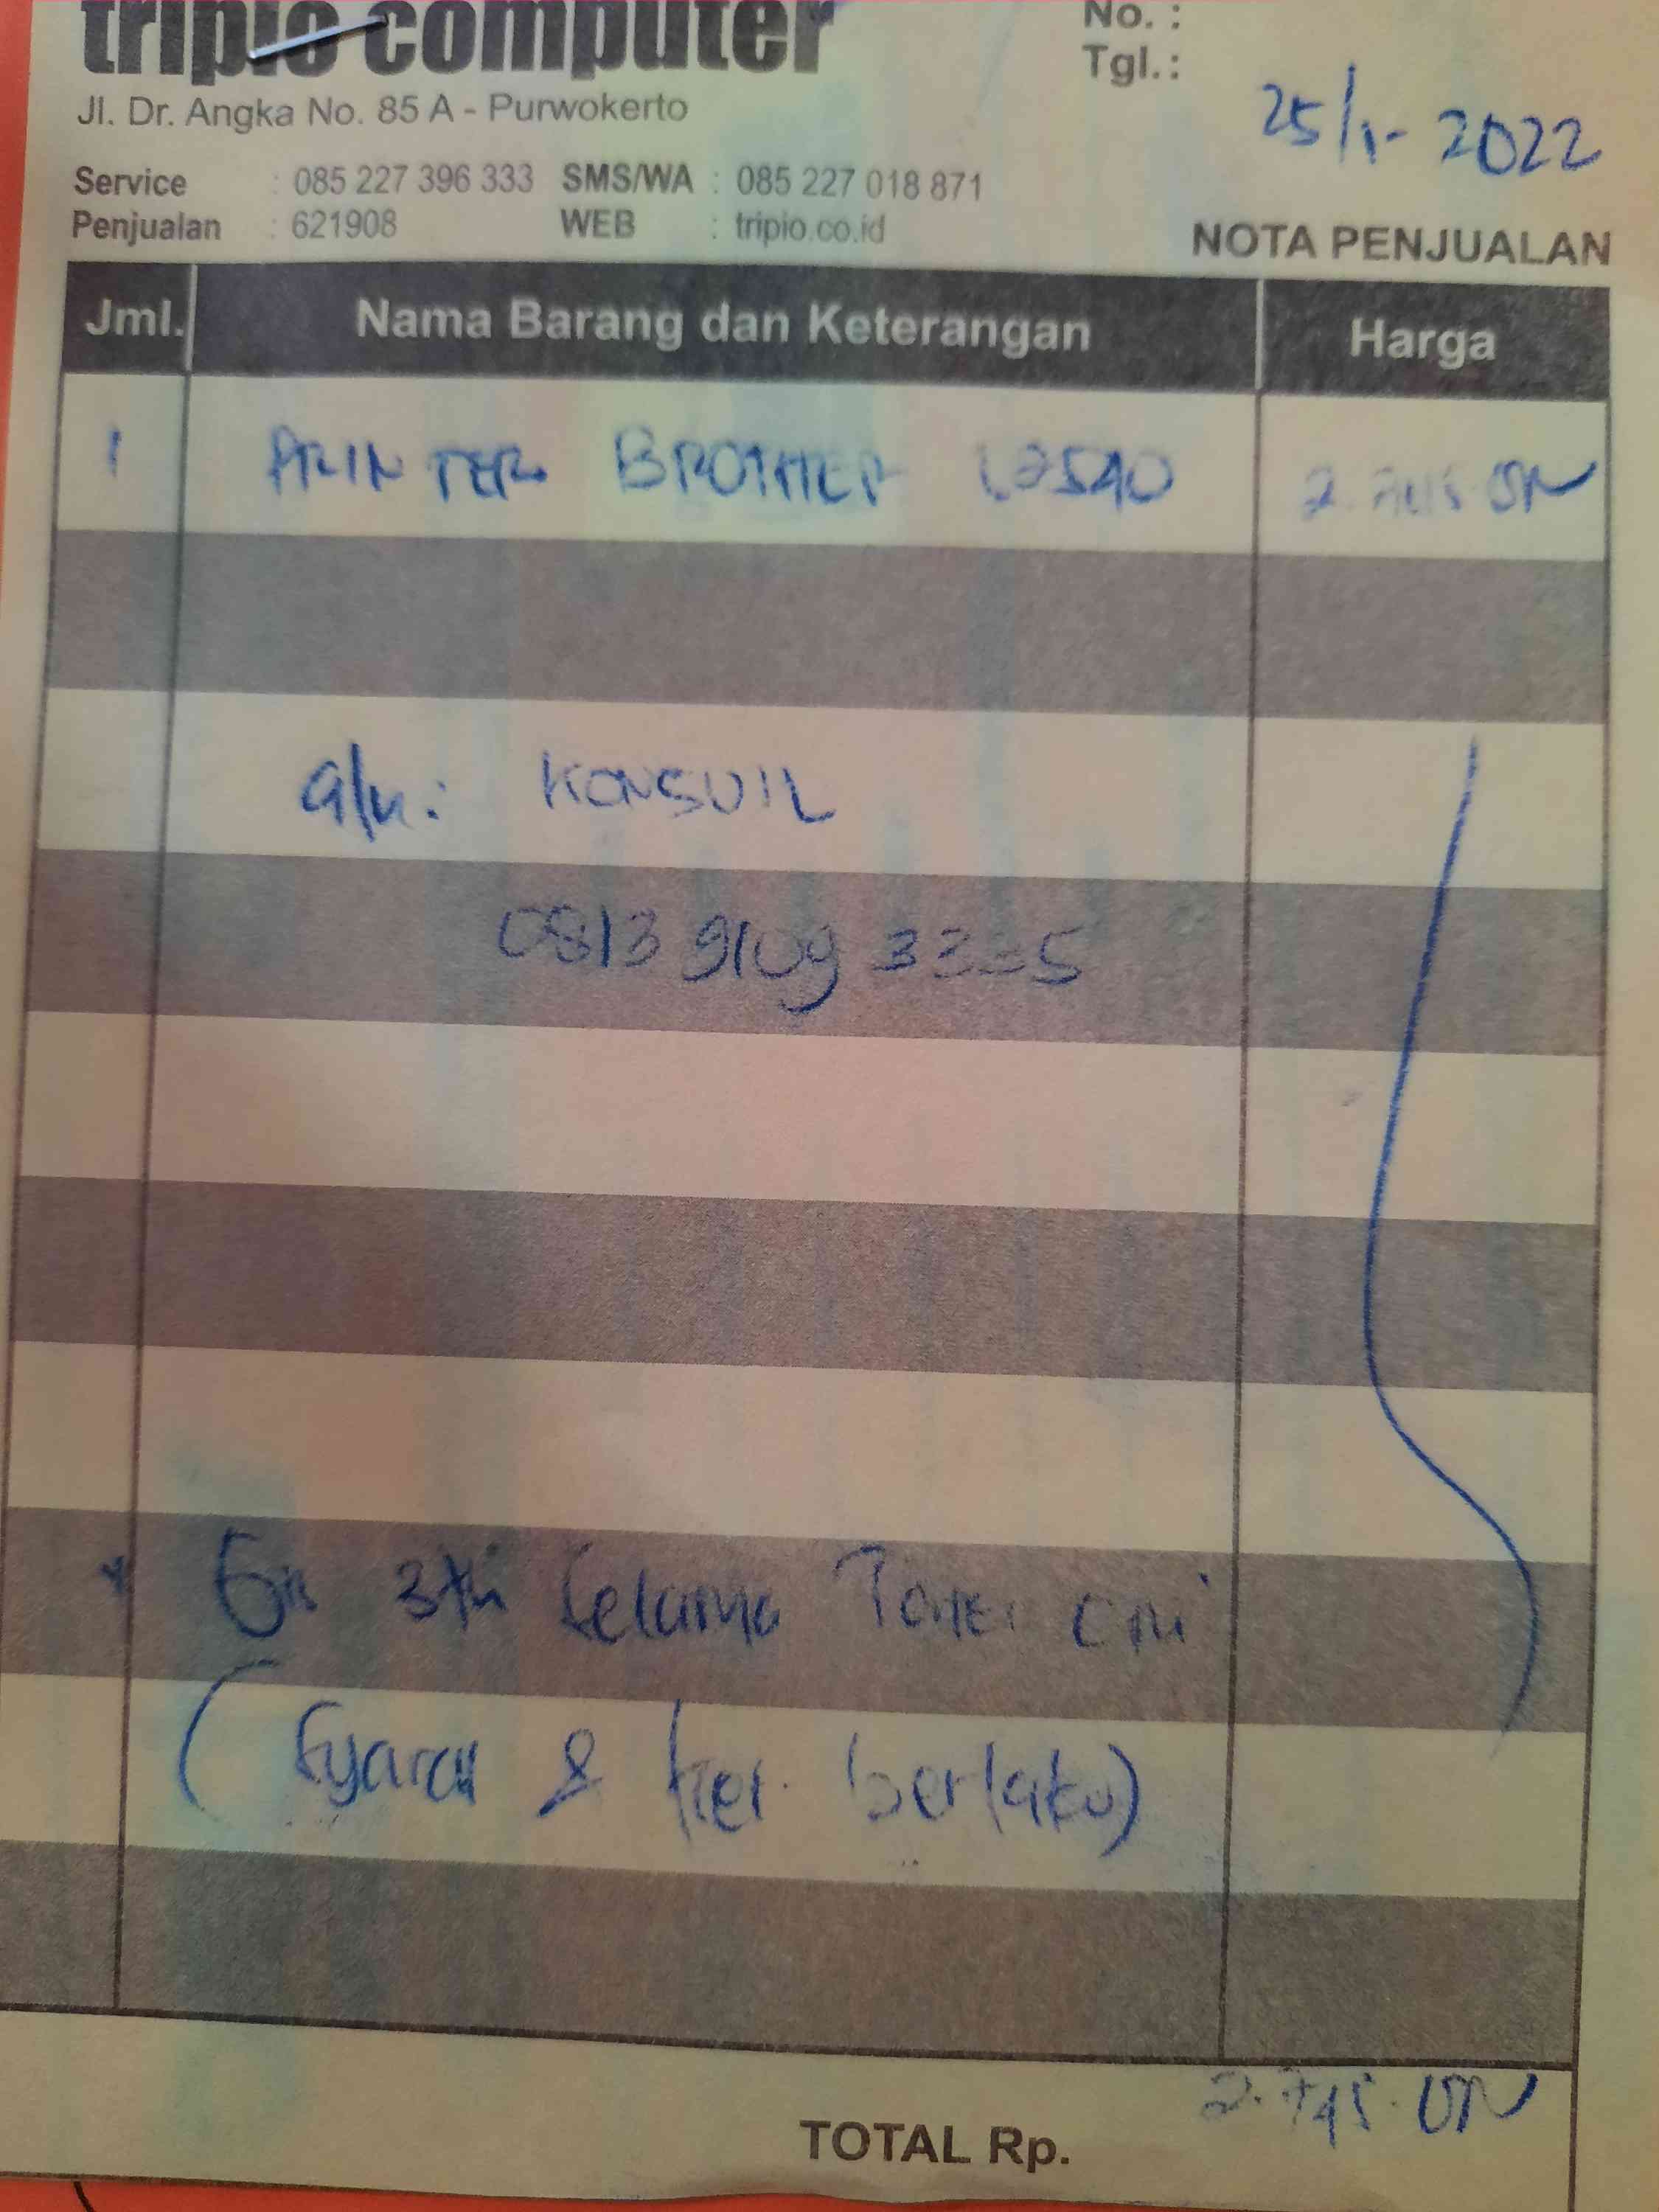 tripio computer
No. :
Tgl. :
25/1- 2022
Jl. Dr. Angka No. 85 A - Purwokerto
Service : 085 227 396 333 SMS/WA : 085 227 018 871
Penjualan : 621908 WEB : tripio.co.id
NOTA PENJUALAN
Jml. Nama Barang dan Keterangan Harga
1 PRINTER BROTHER L2540
a/n: KONSUIL
0813
3th selama Toner ori
(Syarat & ket. berlaku)
TOTAL Rp. 2.745.000